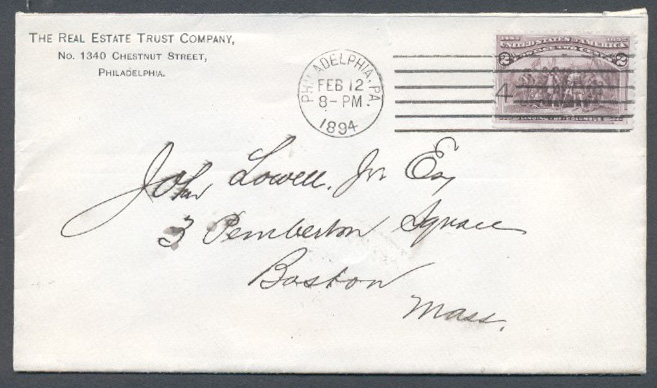 THE REAL ESTATE TRUST COMPANY,
No. 1340 CHESTNUT STREET,
PHILADELPHIA.
PHILADELPHIA, PA.
FEB 12
8-PM
1894
4
UNITED STATES OF AMERICA
2 2
John Lowell, Jr. Esq
3 Pemberton Square
Boston
Mass.